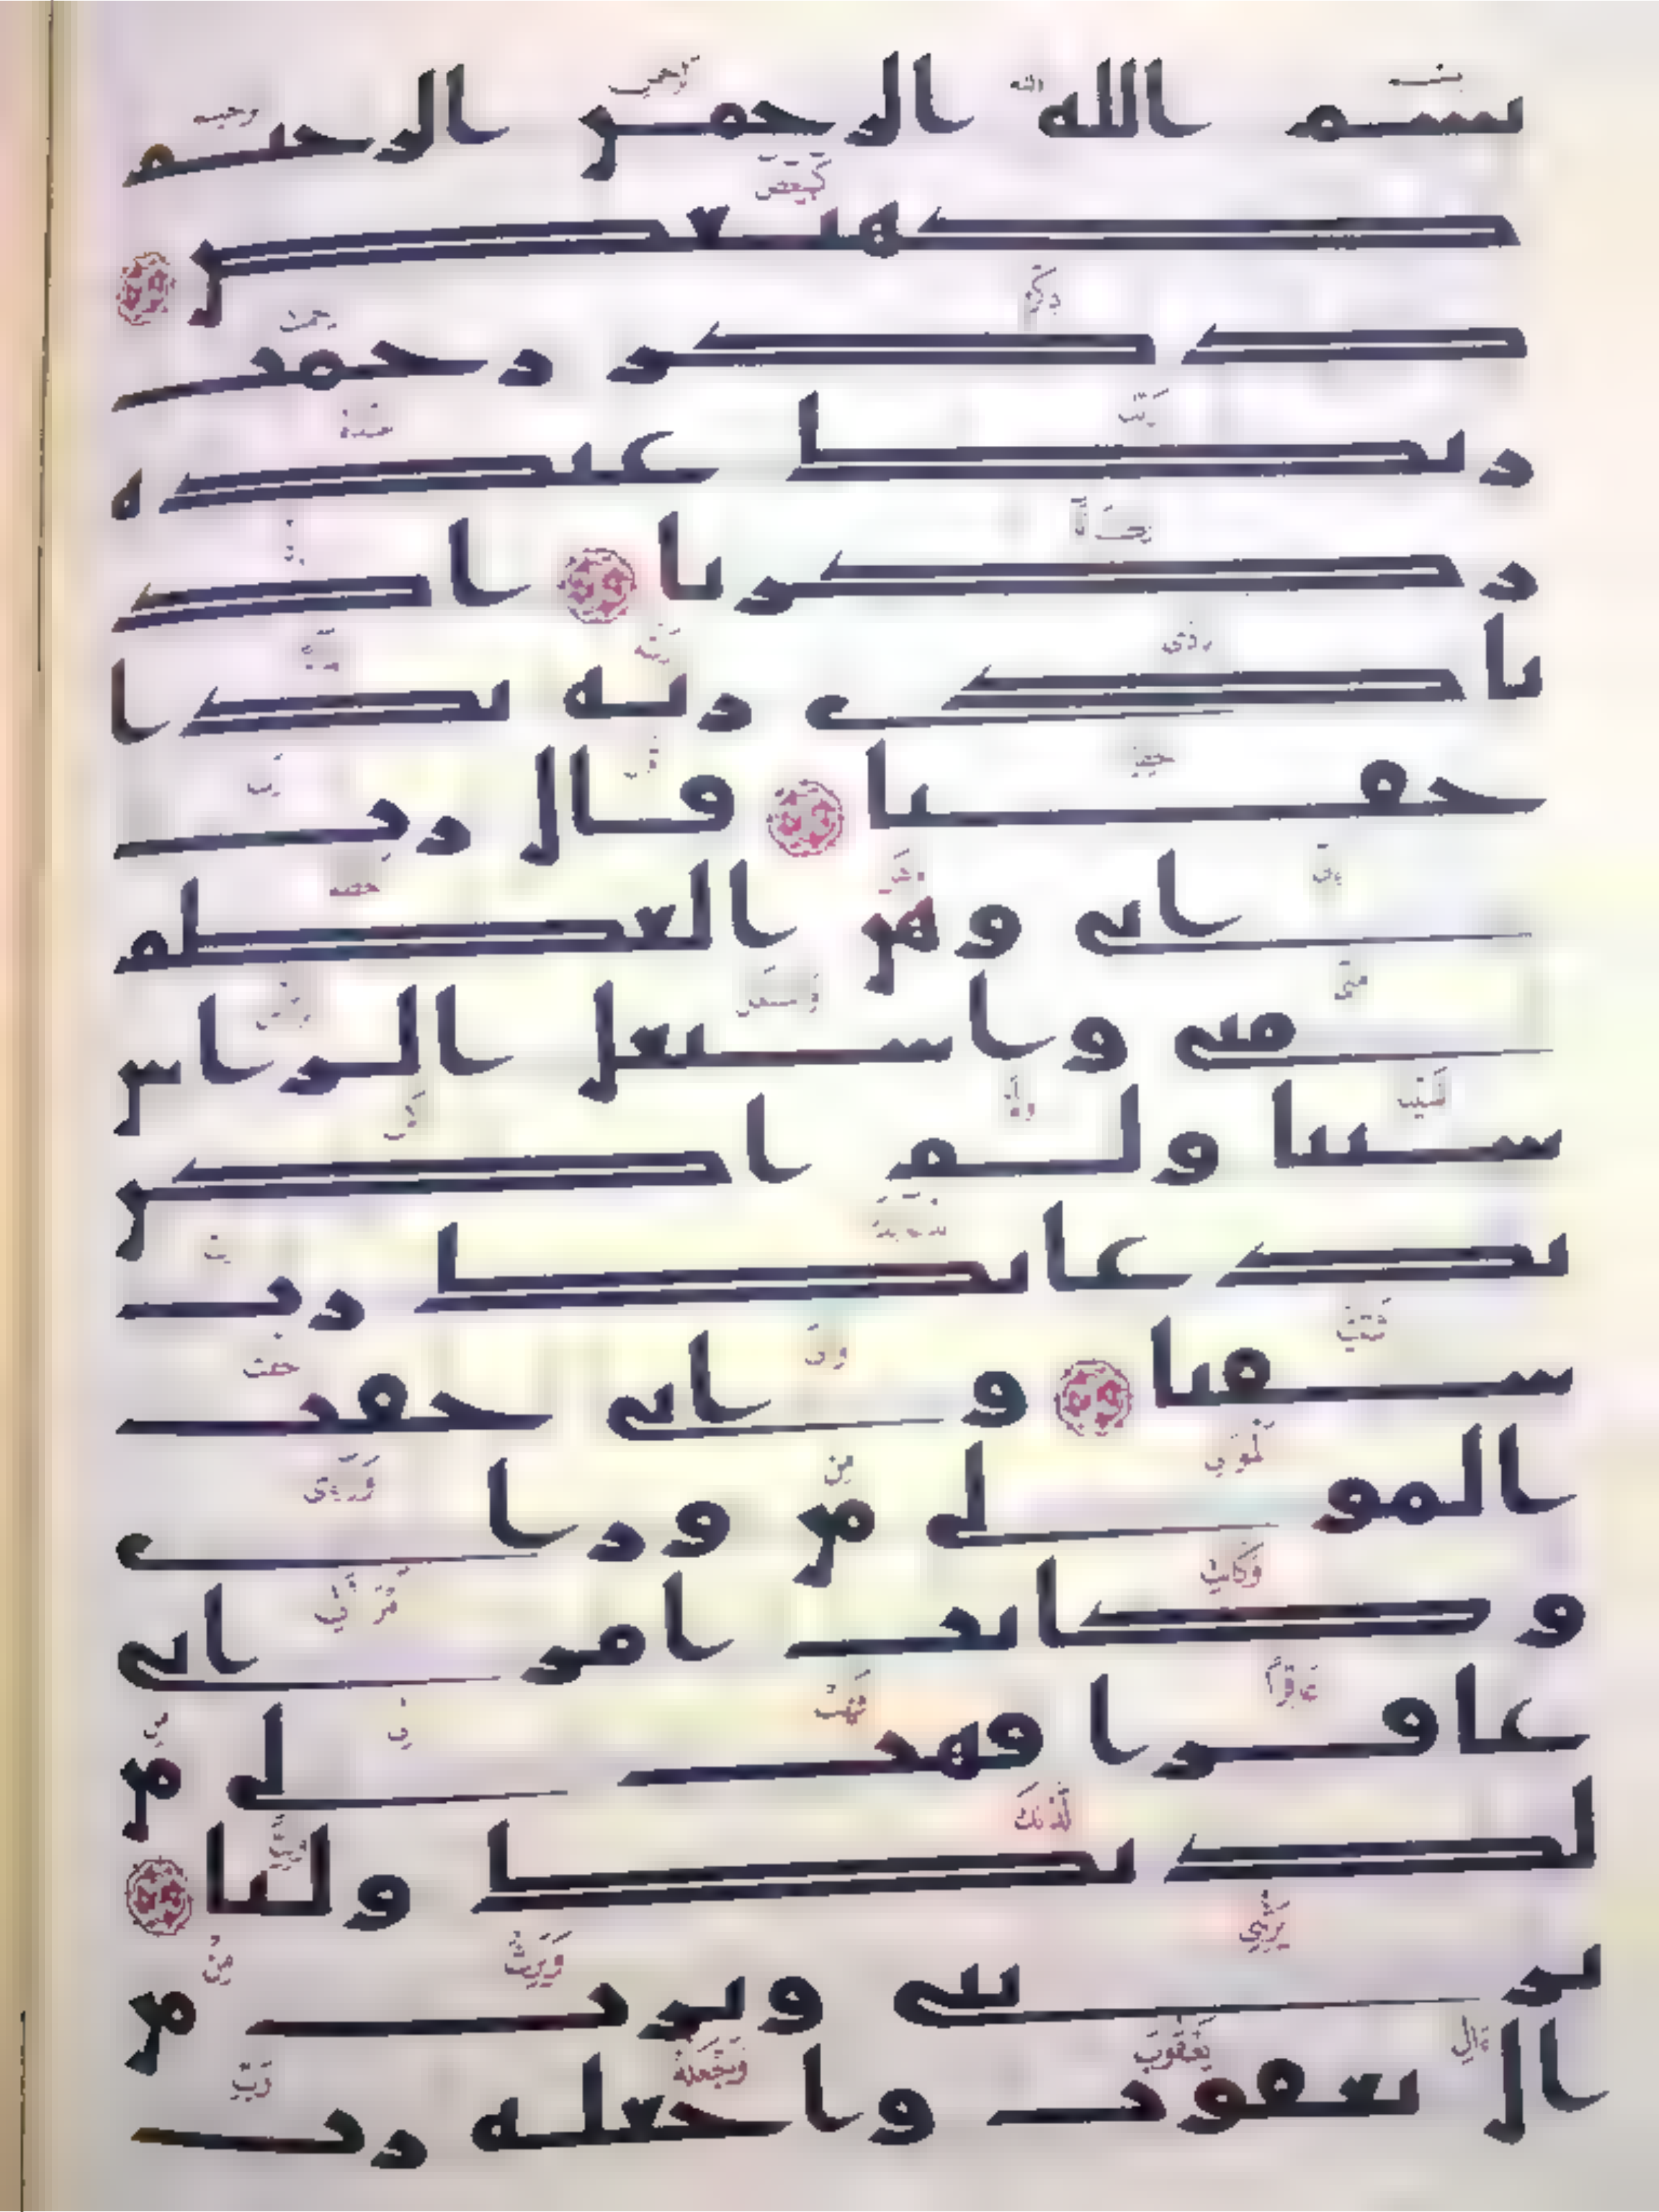 بسم الله الرحمن الرحيم
كهيعص
ذكر رحمت
ربك عبده
زكريا اذ
نادى ربه ندا
خفيا قال رب
اني وهن العظم
مني واشتعل الراس
شيبا ولم اكن
بدعائك رب
شقيا واني خفت
المولي من وراي
وكانت امراتي
عاقرا فهب لي من
لدنك وليا
يرثني ويرث من
ال يعقوب واجعله رب